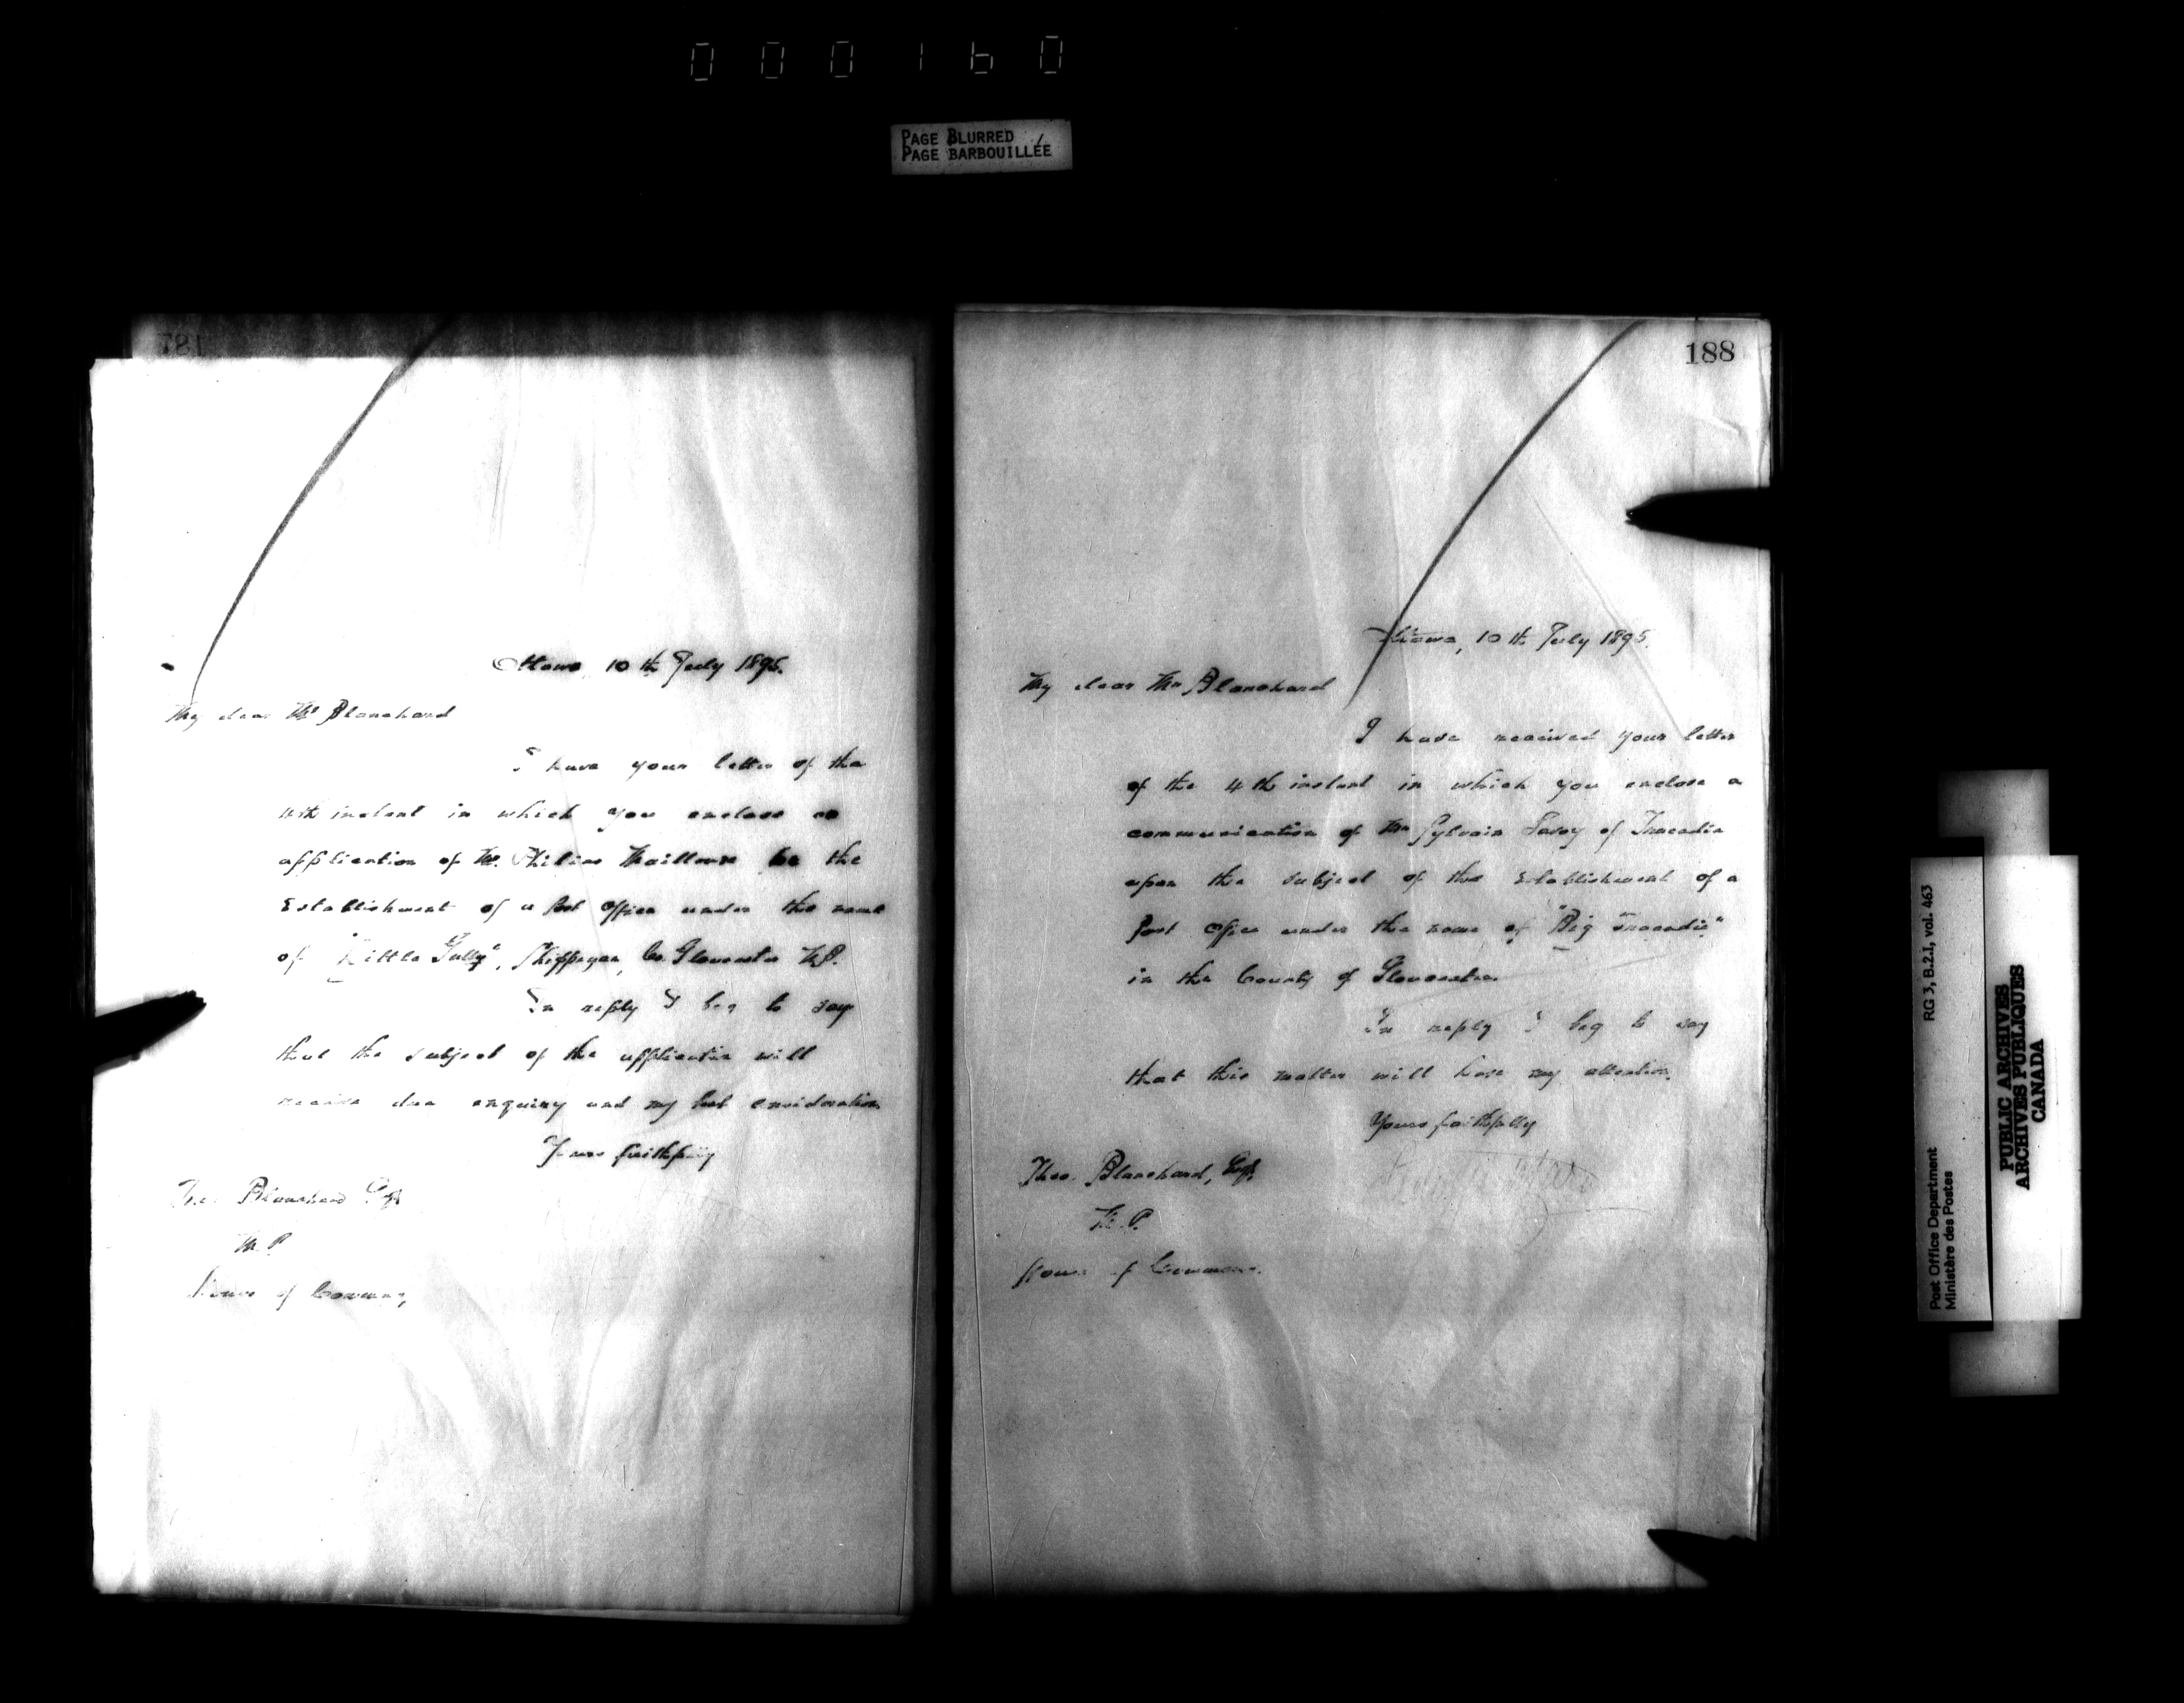 000160
PAGE BLURRED
PAGE BARBOUILLÉE
187
Ottawa, 10th July 1895.
My dear Mr Blanchard
I have your letter of the
4th instant in which you enclose an
application of Mr. for the
Establishment of a Post Office under the name
of "Little Gully", Shippegan, Co. Gloucester N.B.
In reply I beg to say
that the subject of the application will
receive due enquiry and my best consideration
Yours faithfully
Theo. Blanchard Esq
M.P.
House of Commons,
188
Ottawa, 10th July 1895.
My dear Mr Blanchard
I have received your letter
of the 4th instant in which you enclose a
communication of Mr Sylvain Savoy of Tracadie
upon the subject of the Establishment of a
Post Office under the name of "Big Tracadie"
in the County of Gloucester.
In reply I beg to say
that this matter will have my attention.
Yours faithfully
Theo. Blanchard, Esq.
M.P.
House of Commons.
RG 3, B.2.I, vol. 463
Post Office Department
Ministère des Postes
PUBLIC ARCHIVES
ARCHIVES PUBLIQUES
CANADA